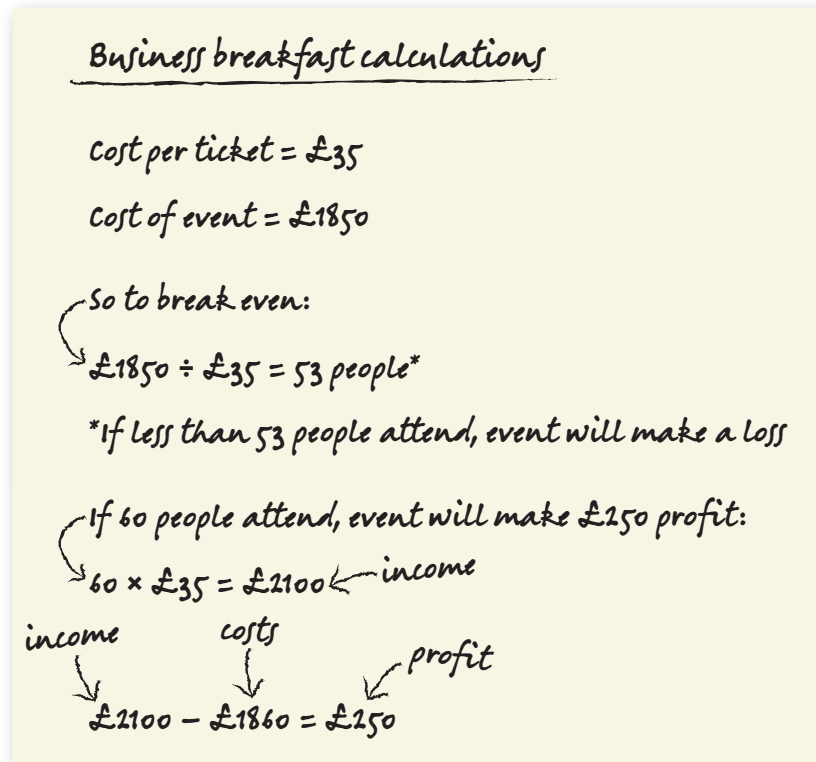 Business breakfast calculations
Cost per ticket = £35
Cost of event = £1850
So to break even:
£1850 ÷ £35 = 53 people*
*If less than 53 people attend, event will make a loss
If 60 people attend, event will make £250 profit:
60 × £35 = £2100 income
income costs profit
£2100 – £1860 = £250